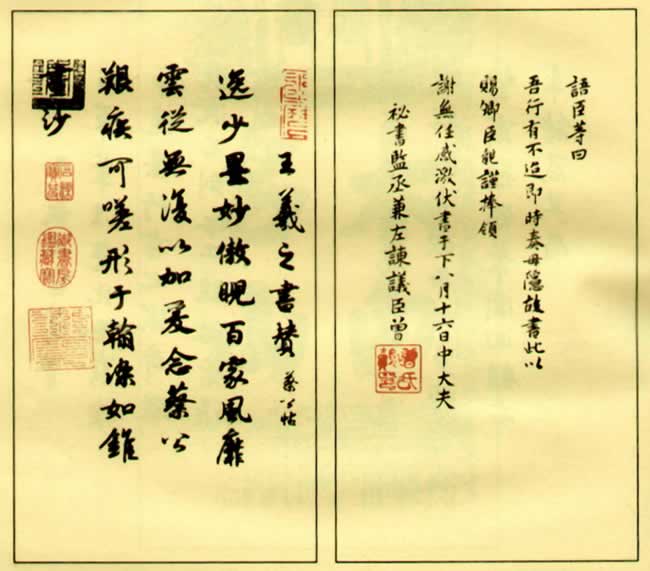 語臣等曰
吾行有不迨即時奏毋隱故書此以
賜卿臣謹捧領
謝無任感激伏書于下八月十六日中大夫
祕書監丞兼左諫議臣曾
王羲之書贊 蔡公帖
逸少墨妙傲睨百家風靡
雲從無復以加爰念蔡公
艱疾可嗟形于翰染如錐
畫沙